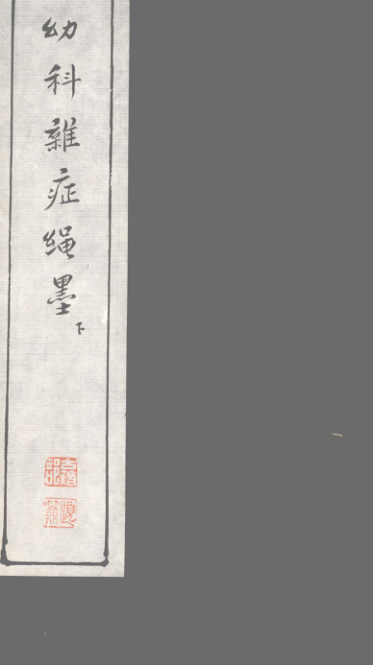 幼科雜症绳墨下